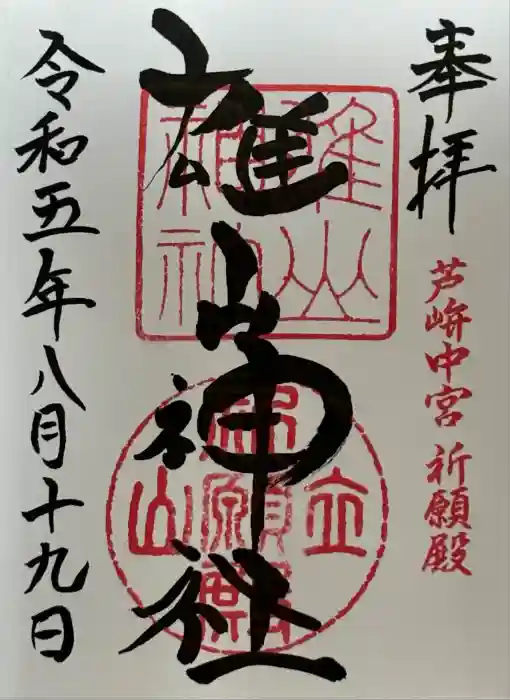 奉拝
芦峅中宮 祈願殿
雄山神社
雄山神社
立山
祈願殿
令和五年八月十九日